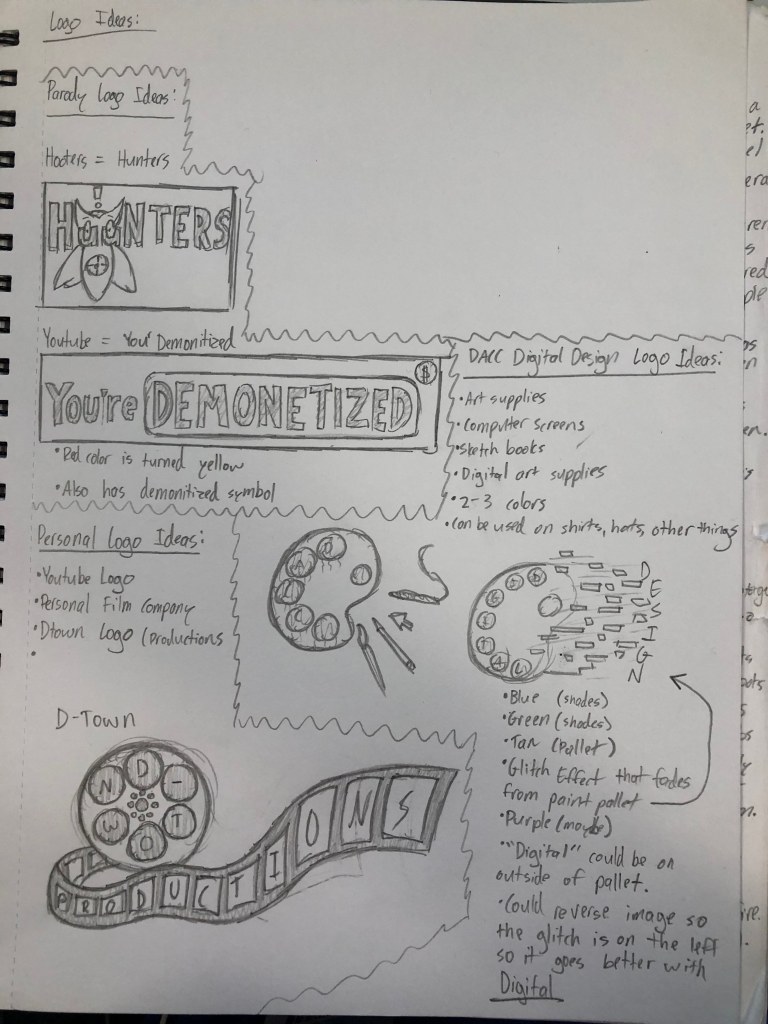 Logo Ideas:
Parody Logo Ideas:
Hooters = Hunters
HOONTERS
Youtube = You' Demonitized
You're DEMONETIZED
$
•Red color is turned yellow
•Also has demonitized symbol
DACC Digital Design Logo Ideas:
•Art supplies
•Computer screens
•Sketch books
•Digital art supplies
•2-3 colors
•Can be used on shirts, hats, other things
Personal Logo Ideas:
•Youtube Logo
•Personal Film Company
•Dtown Logo (Productions
•
DACC
DIGITAL
DESIGN
•Blue (shades)
•Green (shades)
•Tan (Pallet)
•Glitch Effect that fades
from paint pallet
•Purple (maybe)
•"Digital" could be on
outside of pallet.
•Could reverse image so
the glitch is on the left
so it goes better with
Digital
D-Town
D-TOWN
PRODUCTIONS